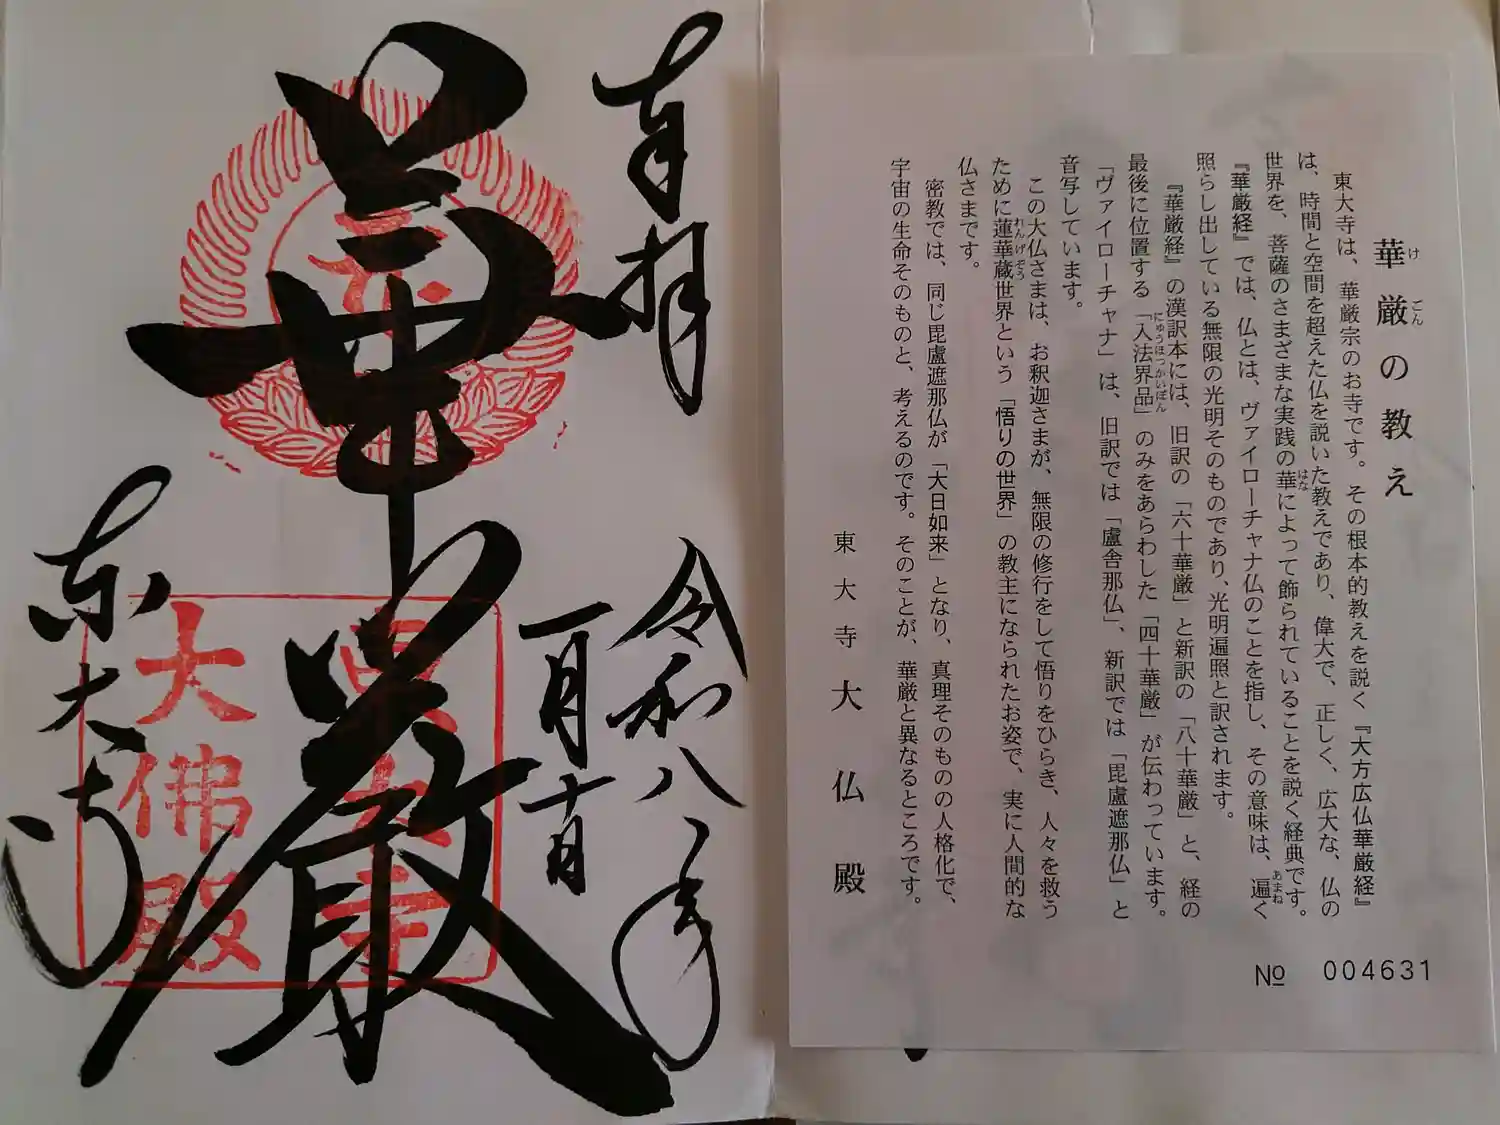 奉拝
令和八年
一月十日
華厳
東大寺
東大寺
大佛殿
華厳の教え
けごん
東大寺は、華厳宗のお寺です。その根本的教えを説く『大方広仏華厳経』
は、時間と空間を超えた仏を説いた教えであり、偉大で、正しく、広大な、仏の
世界を、菩薩のさまざまな実践の華によって飾られていることを説く経典です。
はな
『華厳経』では、仏とは、ヴァイローチャナ仏のことを指し、その意味は、遍く
あまね
照らし出している無限の光明そのものであり、光明遍照と訳されます。
『華厳経』の漢訳本には、旧訳の「六十華厳」と新訳の「八十華厳」と、経の
最後に位置する「入法界品」のみをあらわした「四十華厳」が伝わっています。
にゅうほっかいぼん
「ヴァイローチャナ」は、旧訳では「盧舎那仏」、新訳では「毘盧遮那仏」と
音写しています。
この大仏さまは、お釈迦さまが、無限の修行をして悟りをひらき、人々を救う
ために蓮華蔵世界という「悟りの世界」の教主になられたお姿で、実に人間的な
れんげぞう
仏さまです。
密教では、同じ毘盧遮那仏が「大日如来」となり、真理そのものの人格化で、
宇宙の生命そのものと、考えるのです。そのことが、華厳と異なるところです。
東大寺大仏殿
№ 004631